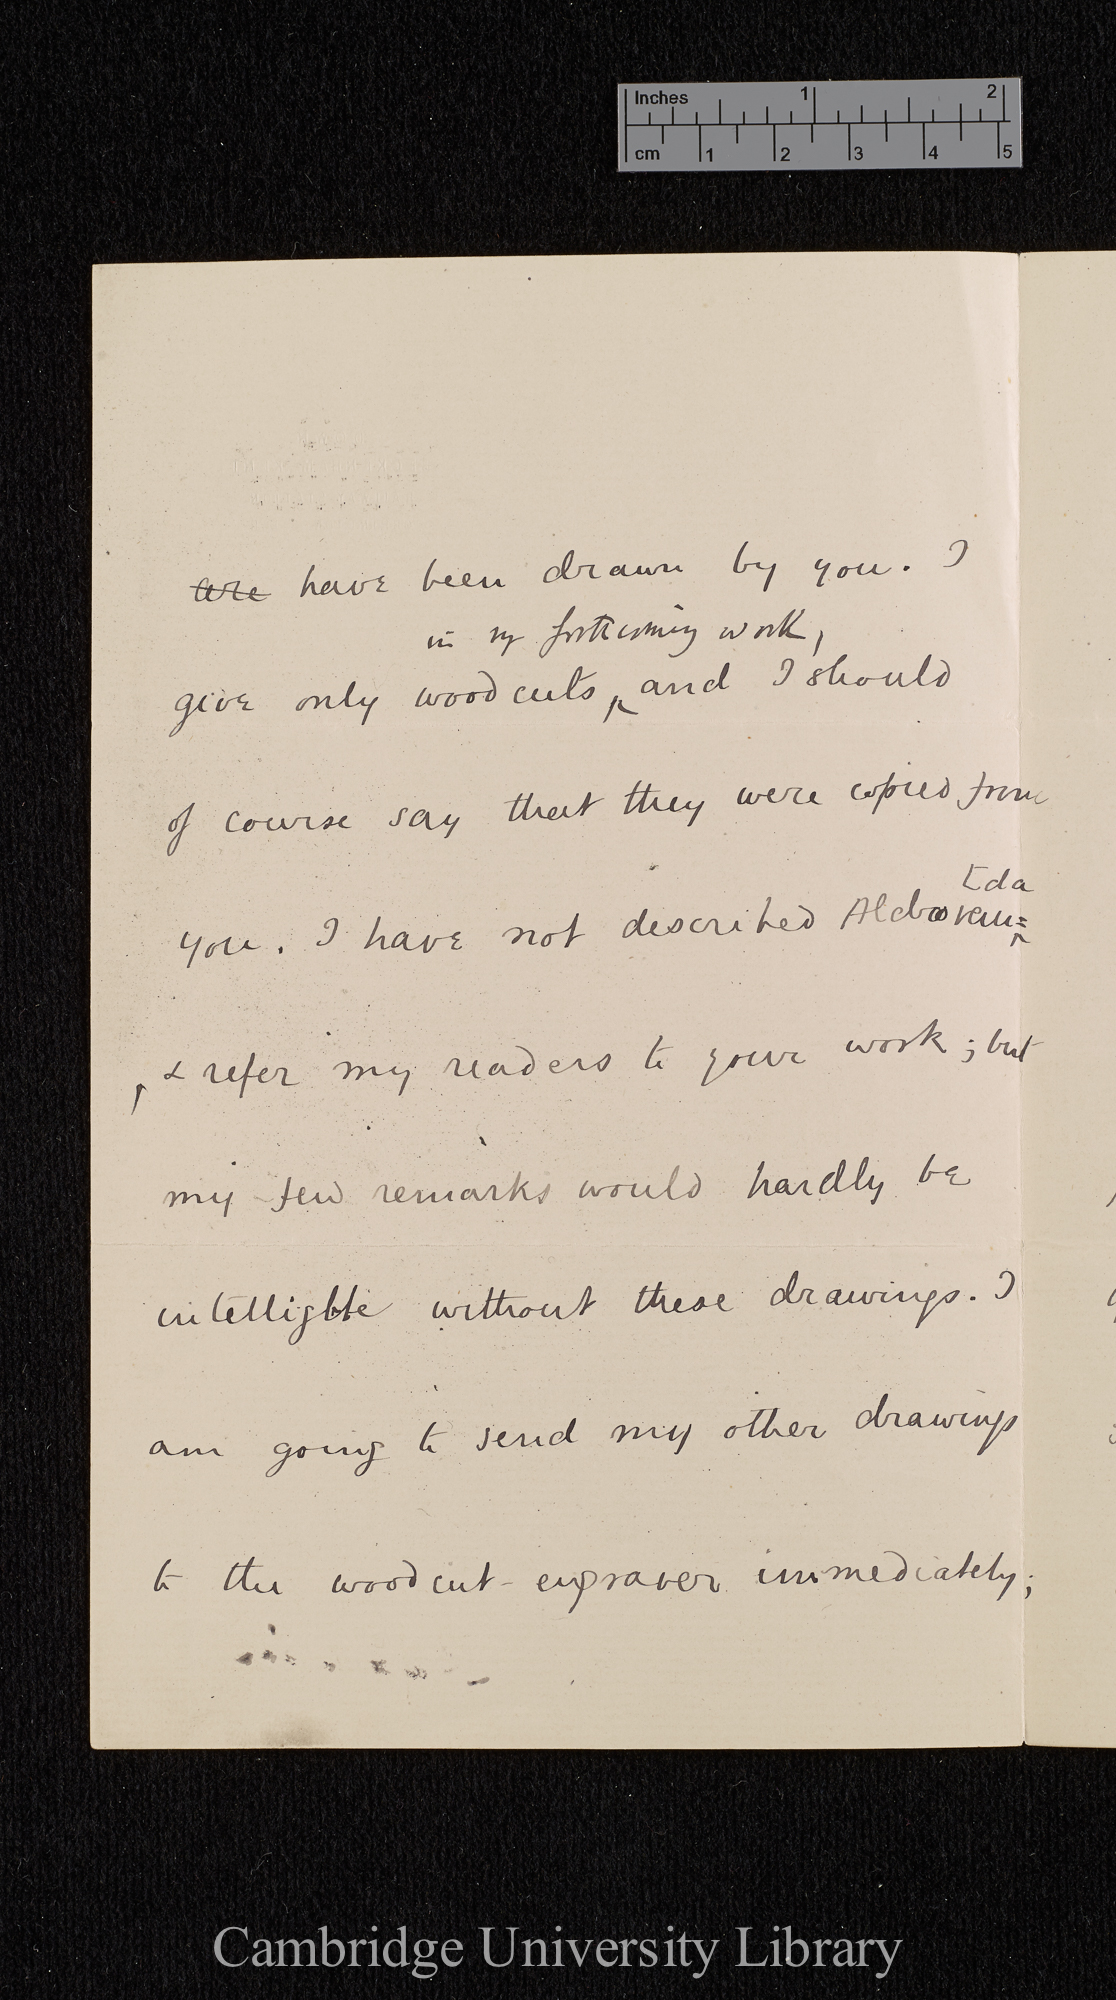 Inches 1 2
cm 1 2 3 4 5
are have been drawn by you. I
in my forthcoming work,
give only woodcuts, and I should
of course say that they were copied from
you. I have not described
& refer my readers to your work; but
my few remarks would hardly be
intelligible without these drawings. I
am going to send my other drawings
to the woodcut-engraver immediately;
Cambridge University Library